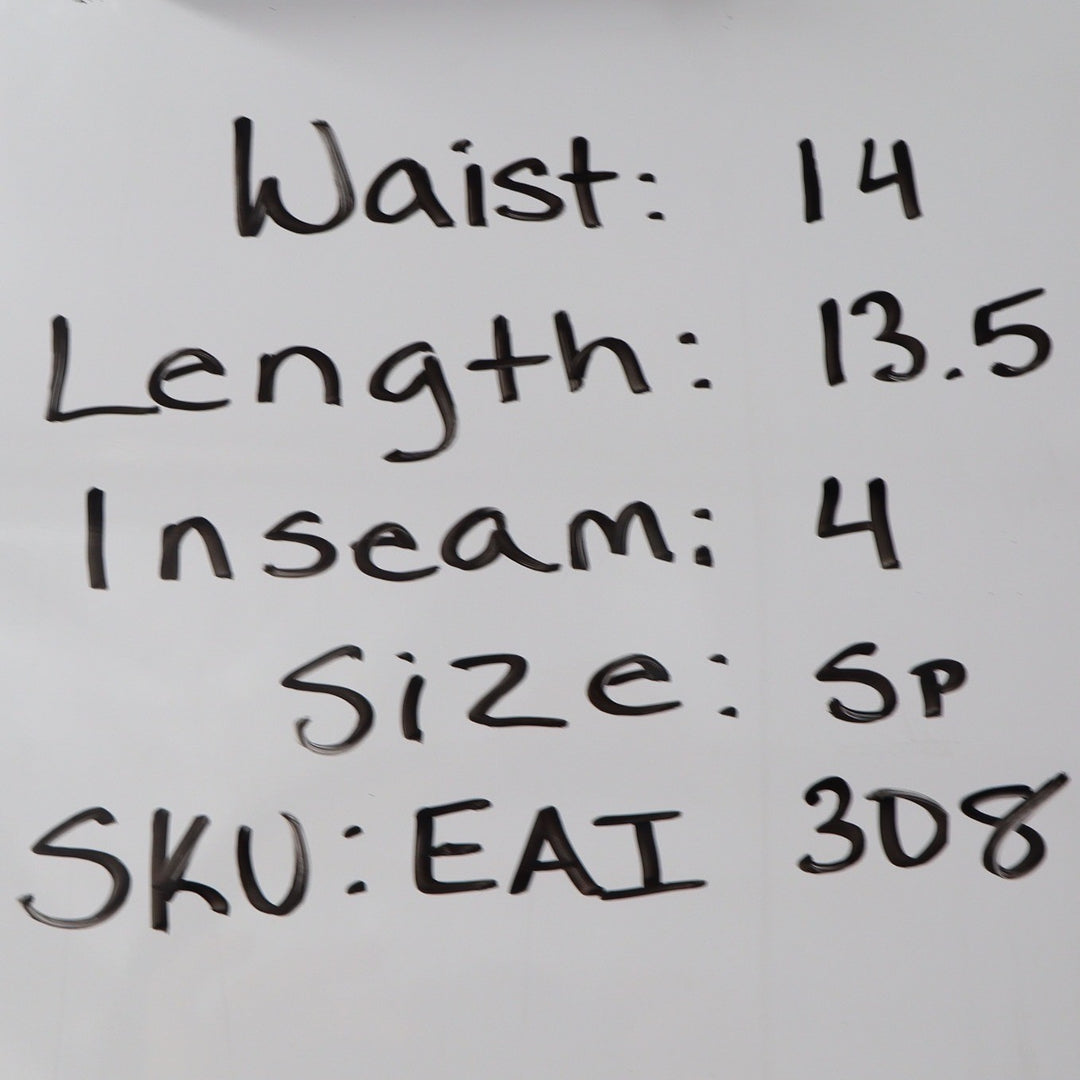 Waist: 14
Length: 13.5
Inseam: 4
Size: SP
SKU: EAI 308